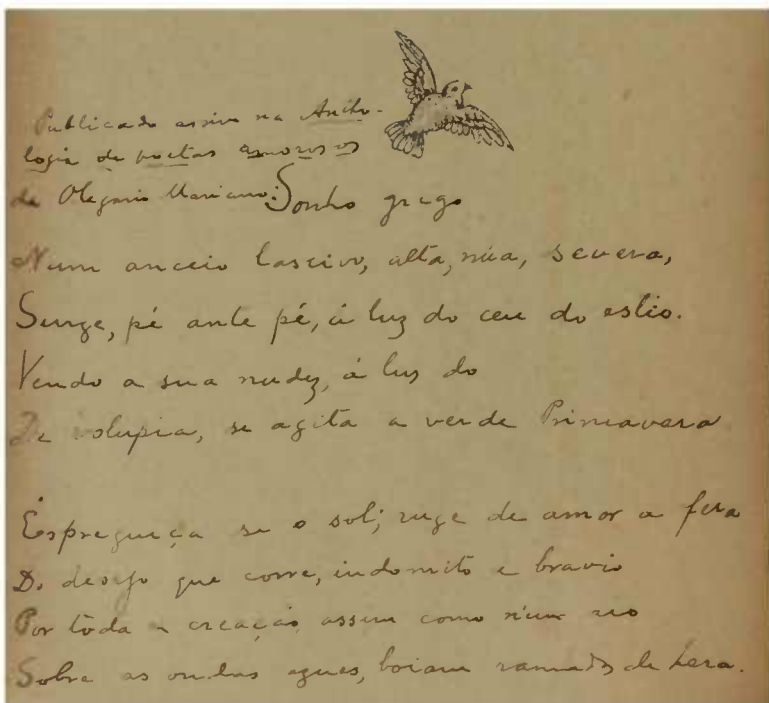 Publicado assim na Antho-
logia de poetas amorosos
de Olegario Mariano:
Sonho grego
Num anceio lascivo, alta, núa, severa,
Surge, pé ante pé, á luz do ceu do estio.
Vendo a sua nudez, á luz do
De volupia, se agita a verde Primavera
Espreguiça se o sol; ruge de amor a fera
Do desejo que corre, indomito e bravio
Por toda a creação, assim como n'um rio
Sobre as ondas azues, boiam ramadas de hera.